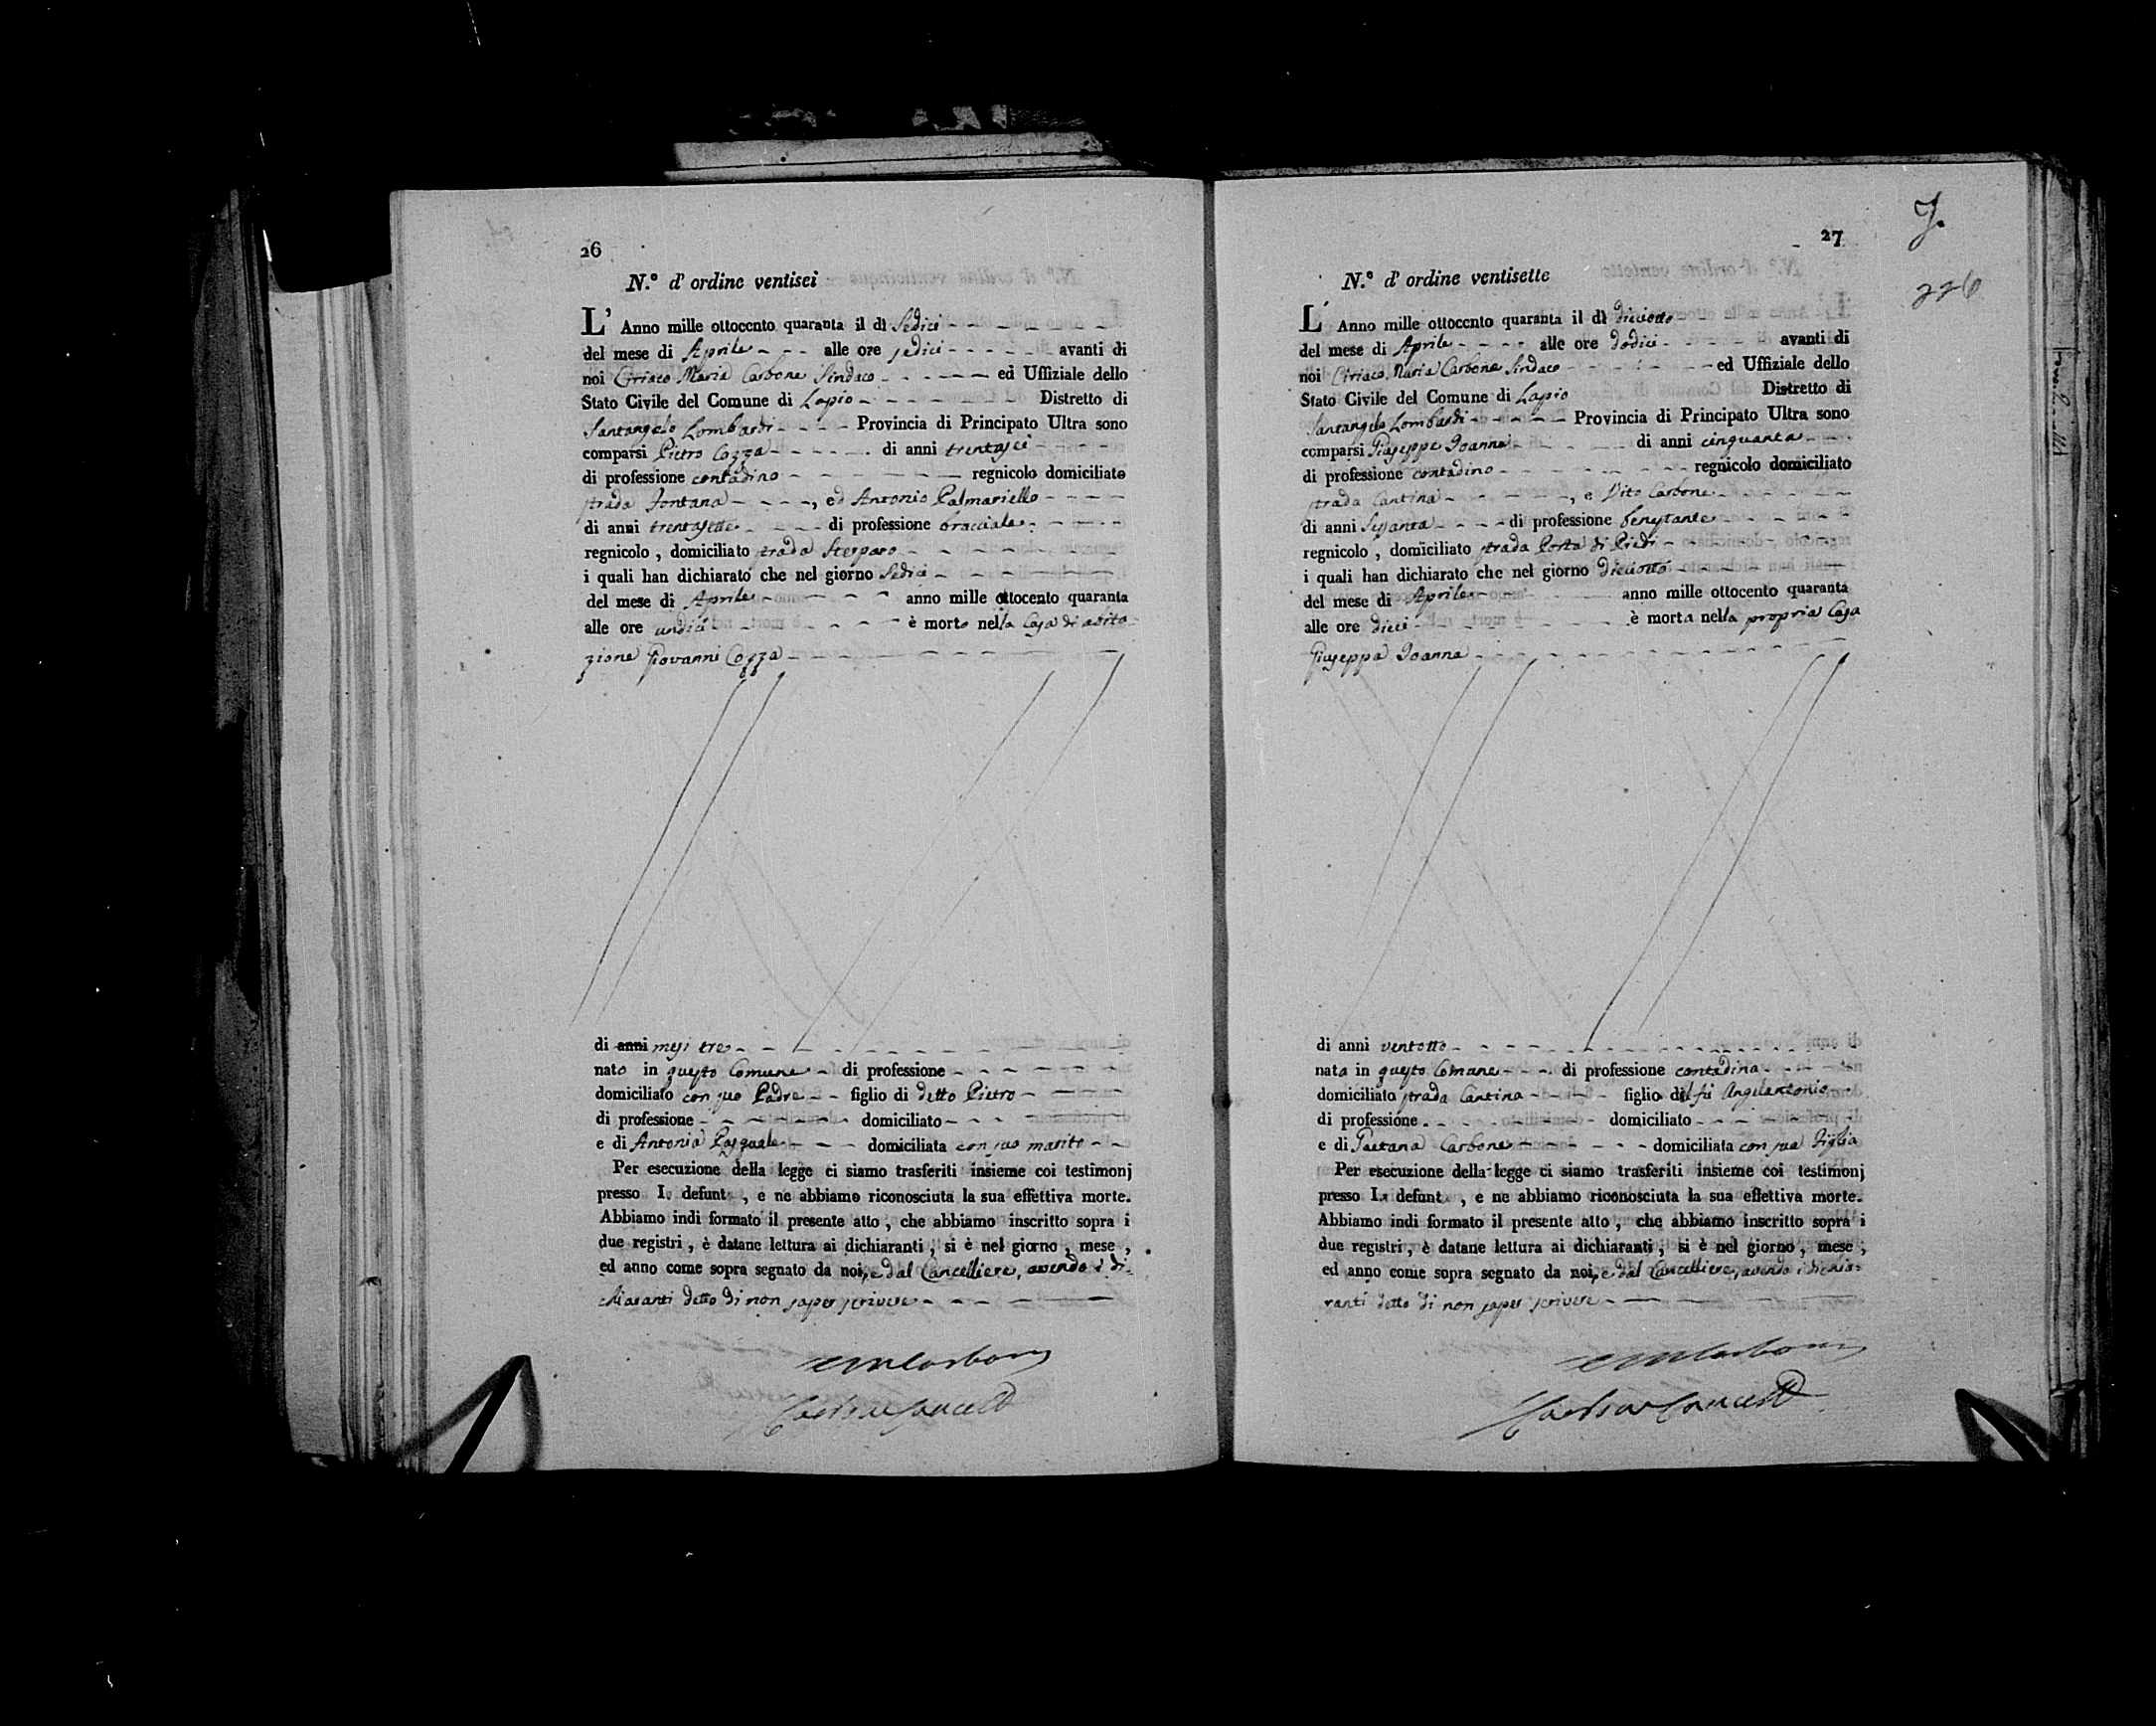 26
N.° d' ordine ventisei
L' Anno mille ottocento quaranta il dì Sedici
del mese di Aprile alle ore sedici avanti di
noi Ciriaco Maria Carbone Sindaco ed Uffiziale dello
Stato Civile del Comune di Lapio Distretto di
Santangelo Lombardi Provincia di Principato Ultra sono
comparsi Pietro Cozza di anni trentasei
di professione contadino regnicolo domiciliato
strada Fontana, ed Antonio Palmariello
di anni trentasette di professione bracciale
regnicolo, domiciliato strada Sterparo
i quali han dichiarato che nel giorno Sedici
del mese di Aprile anno mille ottocento quaranta
alle ore undici è morto nella Casa di abita-
zione Giovanni Cozza
di anni mesi tre
nato in questo Comune di professione
domiciliato con suo Padre figlio di detto Pietro
di professione domiciliato
e di Antonia Pasquale domiciliata con suo marito
Per esecuzione della legge ci siamo trasferiti insieme coi testimonj
presso l defunt, e ne abbiamo riconosciuta la sua effettiva morte.
Abbiamo indi formato il presente atto, che abbiamo inscritto sopra i
due registri, è datane lettura ai dichiaranti, si è nel giorno, mese,
ed anno come sopra segnato da noi, e dal Cancelliere, avendo i di-
chiaranti detto di non saper scrivere
CMCarbone
27
7.
226
N.° d' ordine ventisette
L' Anno mille ottocento quaranta il dì diciotto
del mese di Aprile alle ore dodici avanti di
noi Ciriaco Maria Carbone Sindaco ed Uffiziale dello
Stato Civile del Comune di Lapio Distretto di
Santangelo Lombardi Provincia di Principato Ultra sono
comparsi Giuseppe Ioanna di anni cinquanta
di professione contadino regnicolo domiciliato
strada Cantina, e Vito Carbone
di anni Sessanta di professione benestante
regnicolo, domiciliato strada Porta di Piedi
i quali han dichiarato che nel giorno diciotto
del mese di Aprile anno mille ottocento quaranta
alle ore dieci è morta nella propria Casa
Giuseppa Ioanna
di anni ventotto
nata in questo Comune di professione contadina
domiciliata strada Cantina figlia del fù Angelantonio
di professione domiciliato
e di Gaetana Carbone domiciliata con sua figlia
Per esecuzione della legge ci siamo trasferiti insieme coi testimonj
presso La defunt, e ne abbiamo riconosciuta la sua effettiva morte.
Abbiamo indi formato il presente atto, che abbiamo inscritto sopra i
due registri, è datane lettura ai dichiaranti, si è nel giorno, mese,
ed anno come sopra segnato da noi, e dal Cancelliere, avendo i dichia-
ranti detto di non saper scrivere
CMCarbone